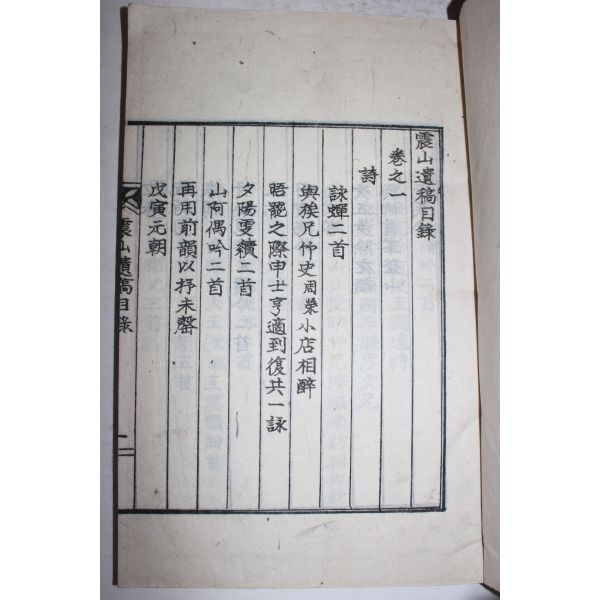 震山遺稿目錄
卷之一
詩
詠蟬二首
與族兄竹史周榮小店相醉
晤罷之際申士亨適到復共一詠
夕陽更續二首
山阿偶吟二首
再用前韻以抒未罄
戊寅元朝
震山遺稿目錄 一